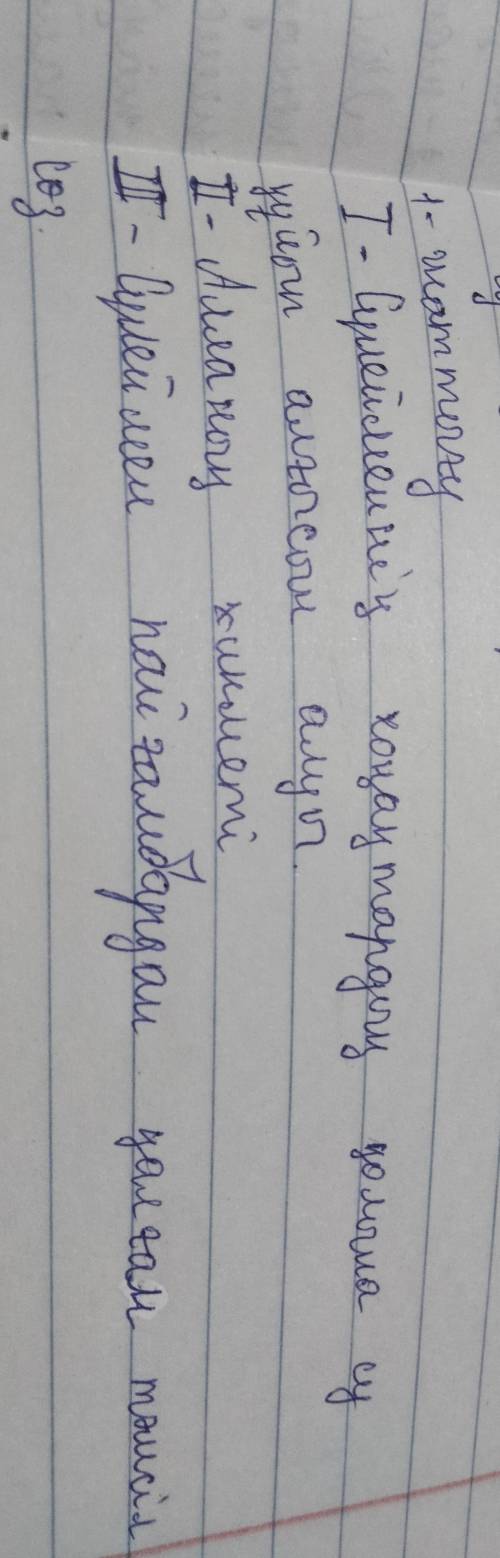 1- жаттығу
I - Сүлейменнің қонақтардың қолына су
құйып алғысын алуы.
II - Алланың хикметі
III - Сүлеймен пайғамбардан қалған тәмсіл
сөз.